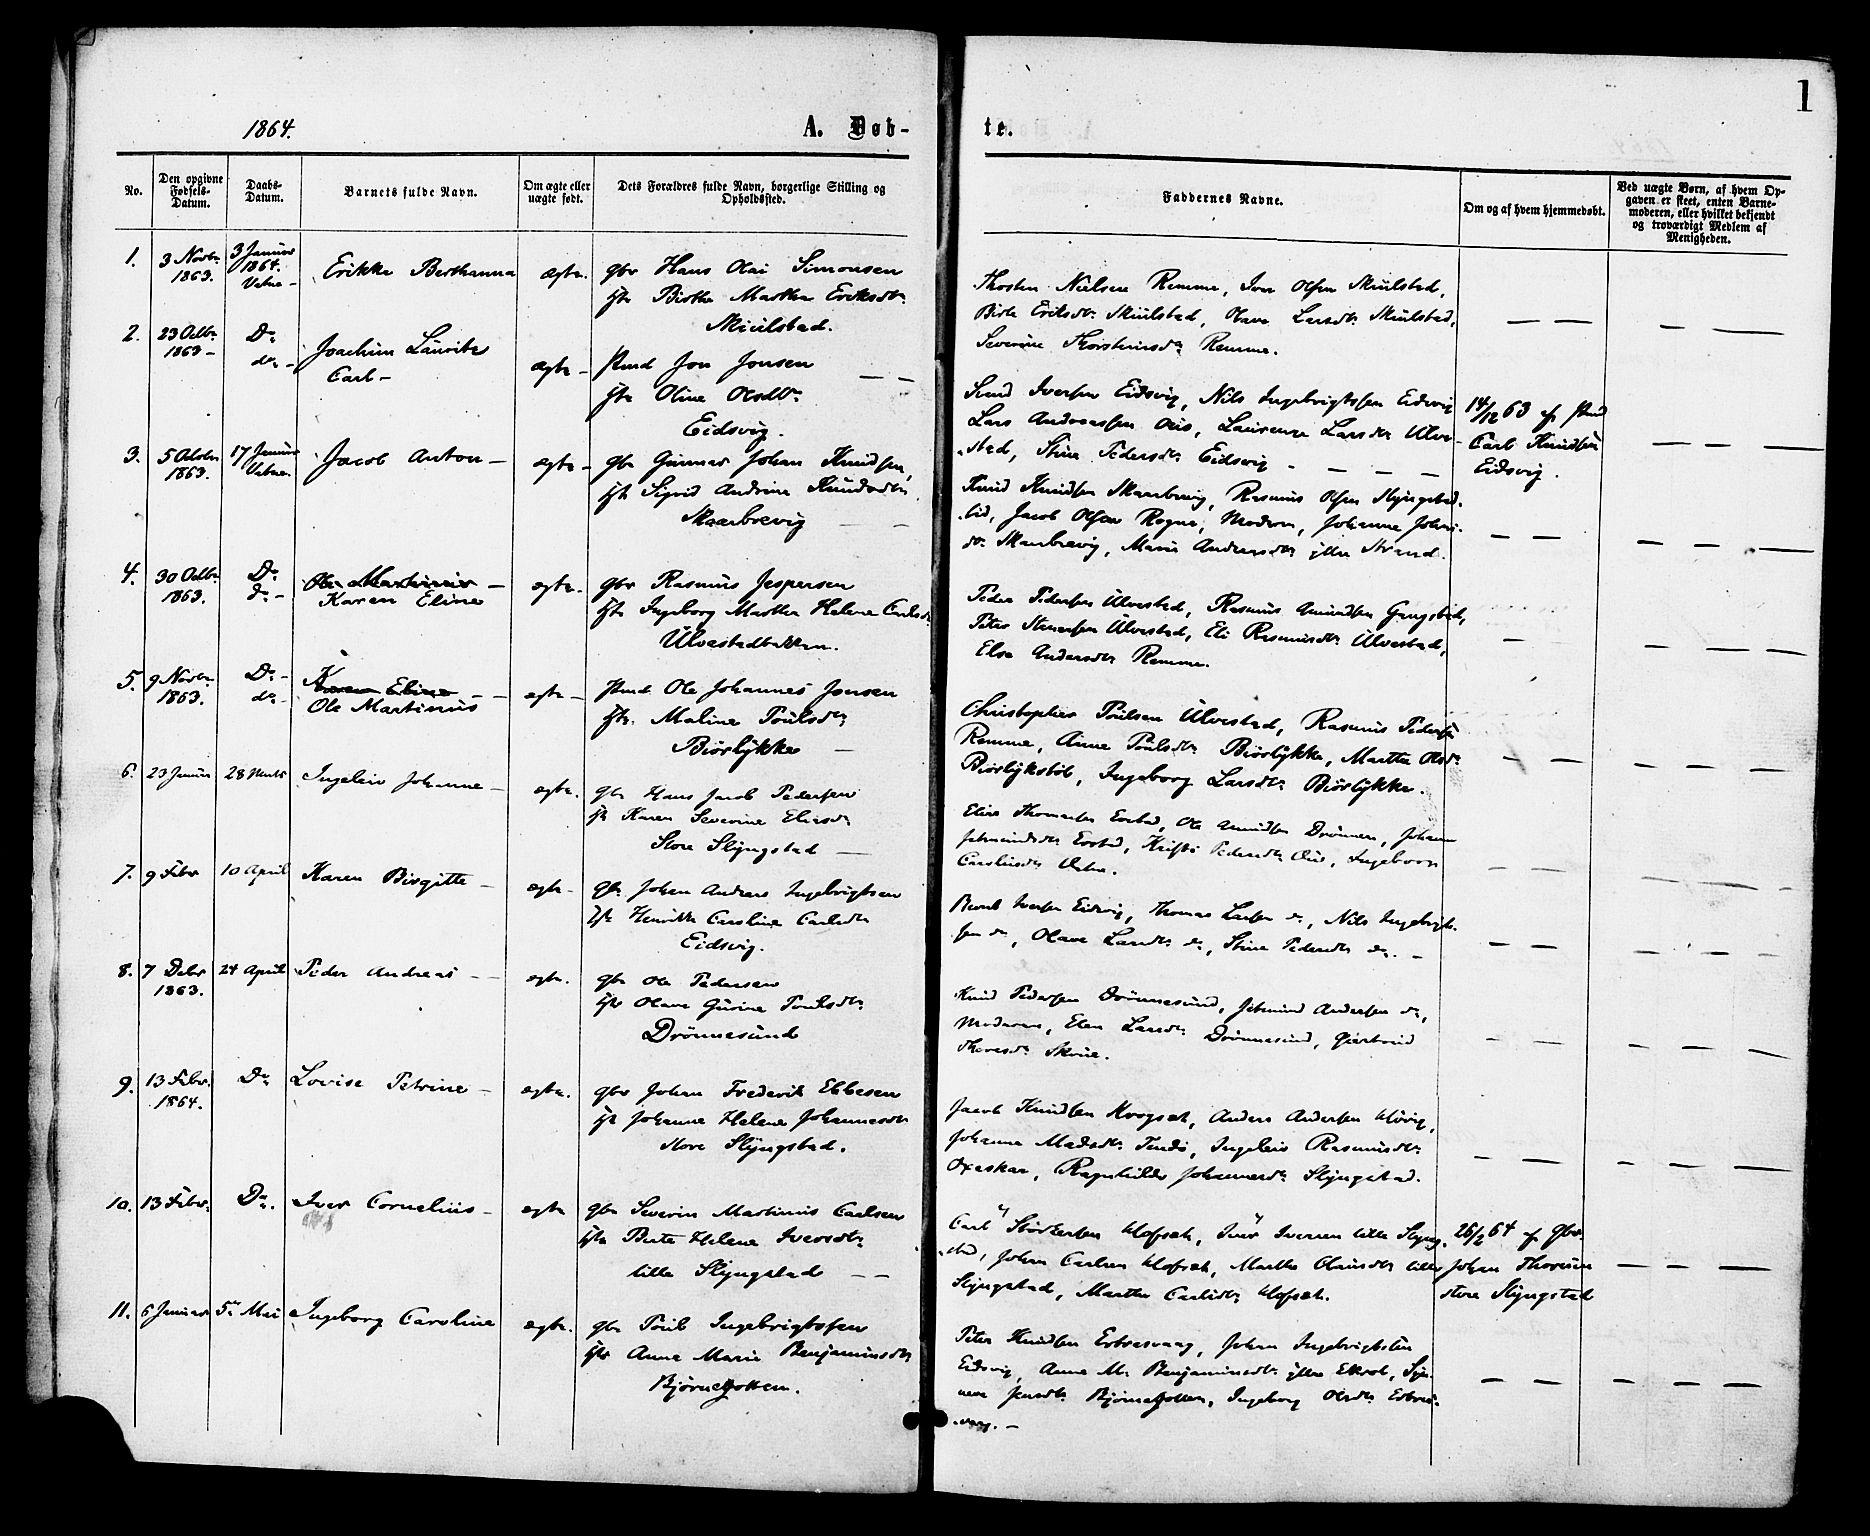 1
1864.
A. Døb-
te.
No.
Den opgivne Fødsels-Datum.
Daabs-Datum.
Barnets fulde Navn.
Om ægte eller uægte født.
Dets Forældres fulde Navn, borgerlige Stilling og Opholdssted.
Faddernes Navne.
Om og af hvem hjemmedøbt.
Ved uægte Børn, af hvem Op-
gaven er skeet, enten Barne-
moderen, eller hvilket bekjendt
og troværdigt Medlem af
Menigheden.
1.
3 Novbr
1863.
3 Januar
1864.
Vatne
Erikke Berthanna
ægte.
gbr Hans Olai Simonsen
Birthe Marthe Eriksdtr
Skuulstad.
Thosten Nielsen Remme, Iver Olsen Skuulstad,
Birte Eriksdtr Skuulstad, Olave Larsdtr Skuulstad,
Severine Thorsteinsdr Remme.
2.
23 Octbr
1863
Do
do
Joachim Lauritz
Carl
ægte
Jon Jonsen
Oline Olsdtr
Eidsvig.
Knud Iversen Eidsvig, Nils Ingebrigtssen Eidsvig
Lars Andreassen Aus, Laurense Larsdtr Ulve-
stad, Stine Pedersdtr Eidsvig
14/12 63 af
Carl Knudsen
Eidsvig.
3.
5 October
1863.
17 Januar
Vatne
Jacob Anton
ægte
gbr Gunnar Johan Knudsen,
Sigrid Andrine Knudsdtr
Skaarbrevig
Knud Knudsen Skarbrevig, Rasmus Olsen Slyngstad-
lid, Jacob Olsen Rogne, Modren, Johanne Johns-
dtr Skarbrevig, Marie Andersdtr yttre Strand.
4.
30 Octbr
1863.
Do
do
Ole Martinus
Karen Eline
ægte.
gbr Rasmus Jespersen
Ingeborg Marthe Helene Carlsdr
Ulvestadbakken.
Peder Pedersen Ulvestad, Rasmus Amundsen Gangstad,
Peter Steneren Ulvestad, Eli Rasmusdtr Ulvestad,
Else Andersdtr Remme.
5.
9 Novbr
1863.
Do
do
Karen Eline
Ole Martinus
ægte
Ole Johannes Jonsen
Maline Poulsdtr
Biørlykke
Christopher Poulsen Ulvestad, Rasmus Pedersen
Remme, Anne Poulsdtr Biørlykke, Marthe Olsdr
Biørlykstøl, Ingeborg Larsdtr Biørlykke.
6.
23 Januar
28 Marts
Ingeleiv Johanne
ægte.
gbr Hans Jacob Pedersen
Karen Severine Eliasdr
Store Slyngstad
Elias Thomassen Eostad, Ole Amundsen Drønnen, Johan
Eostad, Kristi Pedersdtr Aus, Ingeborg
Carolusdtr Vatne.
7.
9 Febr
10 April
Karen Birgitte
ægte
gbr Johan Andreas Ingebrigtsen
Henrikke Caroline Carlsdtr
Eidsvig.
Bernt Iversen Eidsvig, Thomas Larsen do, Nils Ingebrigt-
sen do, Olave Larsdtr do, Stine Pedersdtr do.
8.
7 Debr
1863.
24 April
Peder Andreas
ægte.
gbr Ole Pedersen
Olave Gurine Poulsdtr
Drønnesund
Knud Pedersen Drønnesund, Gitmund Andersen do,
Moderen, Elen Larsdtr Drønnesund, Gjertrud
Thoresdr Skrue.
9.
13 Febr.
1864.
Do
Lovise Petrine
ægte.
gbr Johan Frederik Ebbesen
Johanne Helene Johannesdtr
store Slyngstad.
Jacob Knudsen Hovgsæt, Anders Andersen Kløvig,
Johanne Madsdtr Tendø, Ingeleiv Rasmusdtr
Oxeskar, Ragnhilde Johannesdr Slyngstad.
10.
13 Febr.
Do.
Iver Cornelius
ægte
gbr Severin Martinus Carlsen
Berte Helene Iversdtr
lille Slyngstad
Carl Størkersen Hofsæt, Iver Iversen lille Slyng-
stad, Johan Carlsen Hofsæt, Marthe Olausdtr lille
Slyngstad, Marthe Carlsdtr Hofsæt.
26/2 64 af gbr
Johan Thoresen
store Slyngstad
11.
6 Januar
5te Mai
Ingeborg Caroline
ægte.
gbr Poul Ingebrigtssen
Anne Marie Benjaminsdtr
Bjørnehotten.
Peter Knudsen Erbresvaag, Johan Ingebrigtsen
Eidsvig, Anne M. Benjaminsdtr yttre Ekrol, Syn-
neve Jensdtr Bjørnehotten, Ingeborg Olsdtr Erbres-
vaag.